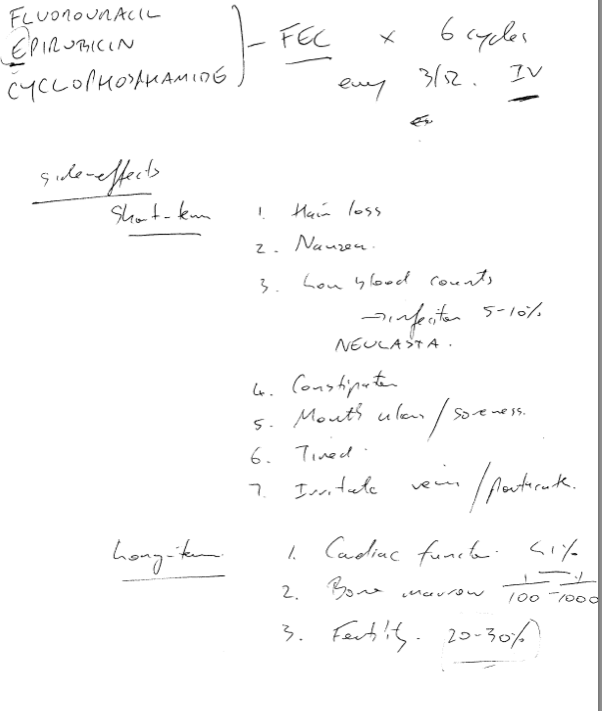 FLUOROURACIL
EPIRUBICIN
CYCLOPHOSPHAMIDE
- FEC x 6 cycles
every 3/52. IV
side-effects
Short-term
1. Hair loss
2. Nausea.
3. Low blood counts
→ infection 5-10%
NEULASTA.
4. Constipation
5. Mouth ulcers / soreness.
6. Tired.
7. Irritate vein / portacath.
Long-term
1. Cardiac function. <1%
2. Bone marrow 1/100 - 1/1000
3. Fertility. 20-30%